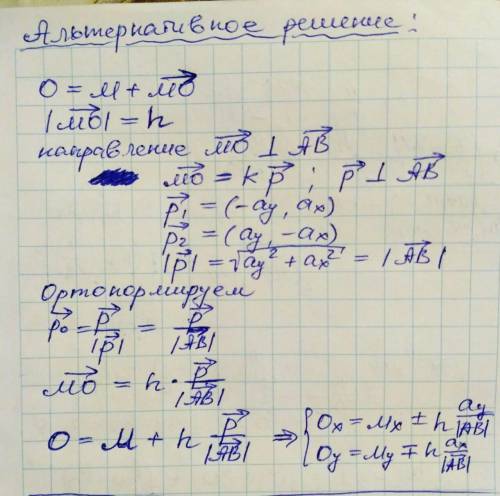 Альтернативное решение:
O = M + \overrightarrow{MO}
|\overrightarrow{MO}| = h
направление \overrightarrow{MO} ⊥ \overrightarrow{AB}
\overrightarrow{MO} = k \vec{p} ; \vec{p} ⊥ \overrightarrow{AB}
\vec{p}_1 = (-ay, ax)
\vec{p}_2 = (ay, -ax)
|\vec{p}| = \sqrt{ay^2 + ax^2} = |\overrightarrow{AB}|
Ортонормируем
\vec{p_0} = \frac{\vec{p}}{|\vec{p}|} = \frac{\vec{p}}{|\overrightarrow{AB}|}
\overrightarrow{MO} = h · \frac{\vec{p}}{|\overrightarrow{AB}|}
O = M + h \frac{\vec{p}}{|\overrightarrow{AB}|} ⇒ { Ox = Mx ± h \frac{ay}{|\overrightarrow{AB}|}
Oy = My ∓ h \frac{ax}{|\overrightarrow{AB}|}